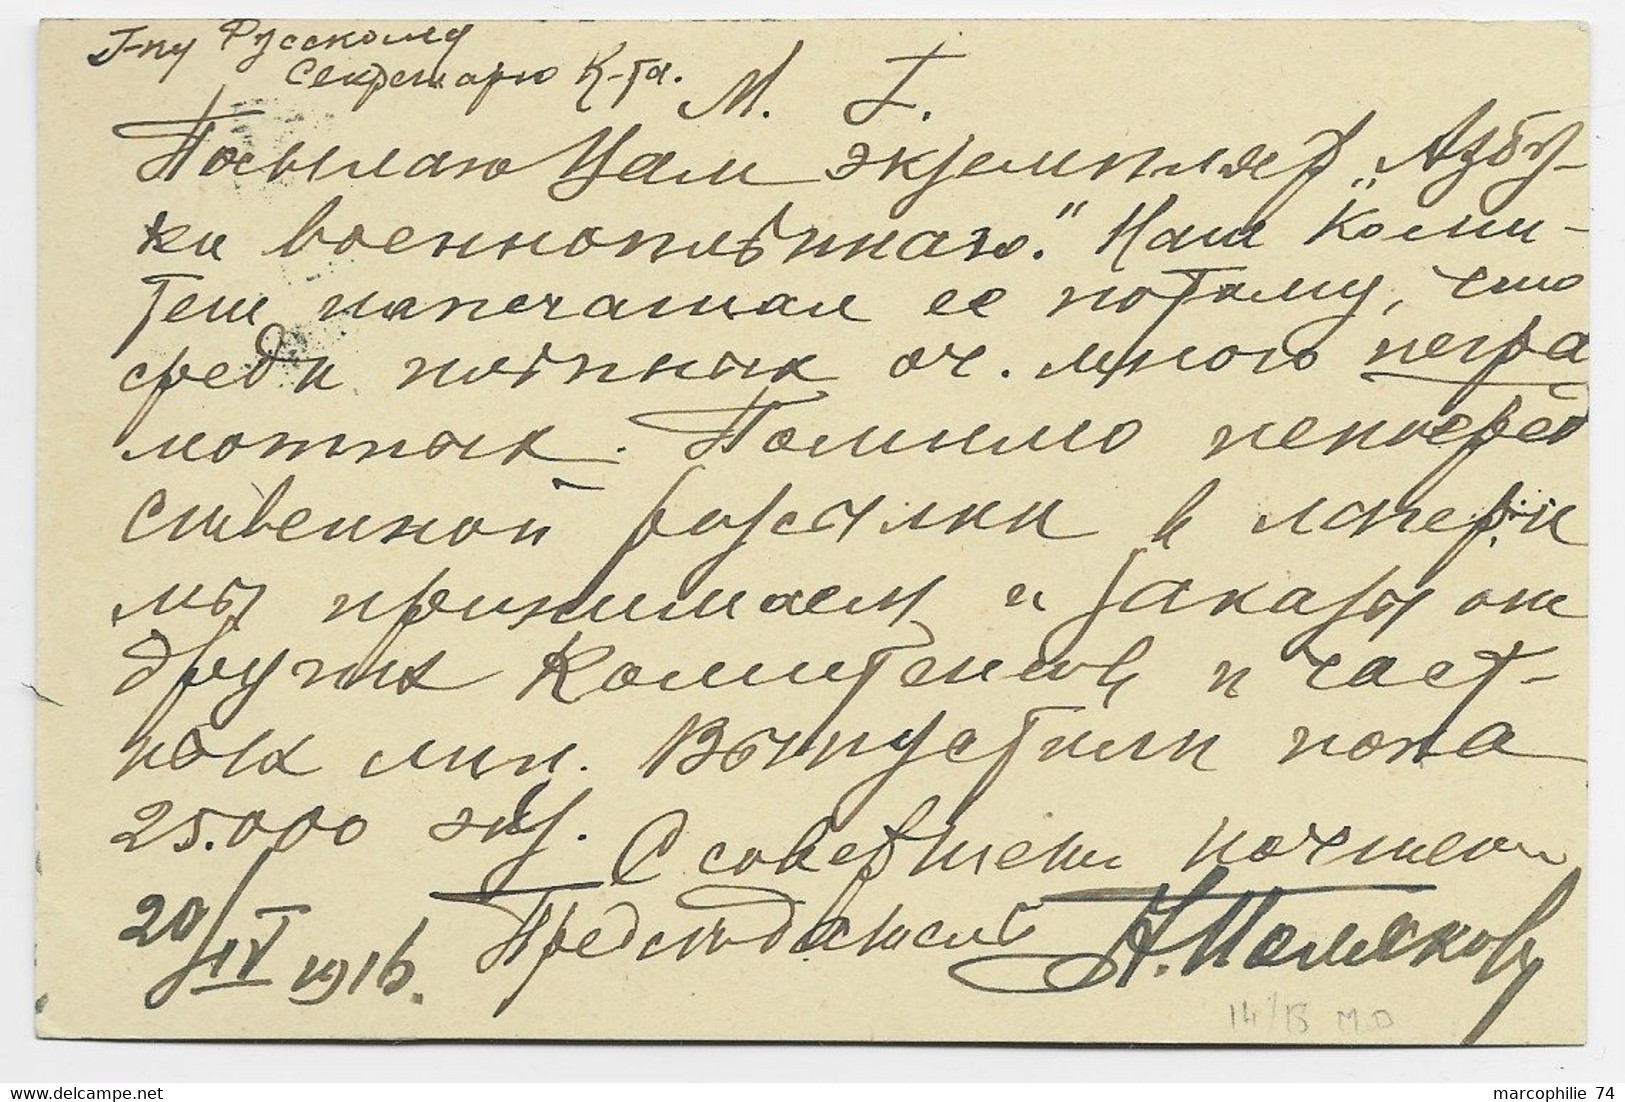 Г-ну Русскому
Секретарю К-та.
М. Г.
Посылаю Вам экземпляр „Азбу-
ки военноплѣннаго." Наш Коми-
тет напечатал ее потому, что
среди плѣнных оч. много негра
мотных. Помимо непосред
ственной разсылки в лагери
мы принимаем и заказы от
других Комитетов и част-
ных лиц. Выпустили пока
25.000 экз.
С совершен. почтен
20/IV 1916. Предсѣдатель А. Поляков
14/18 M.D
marcophilie 74